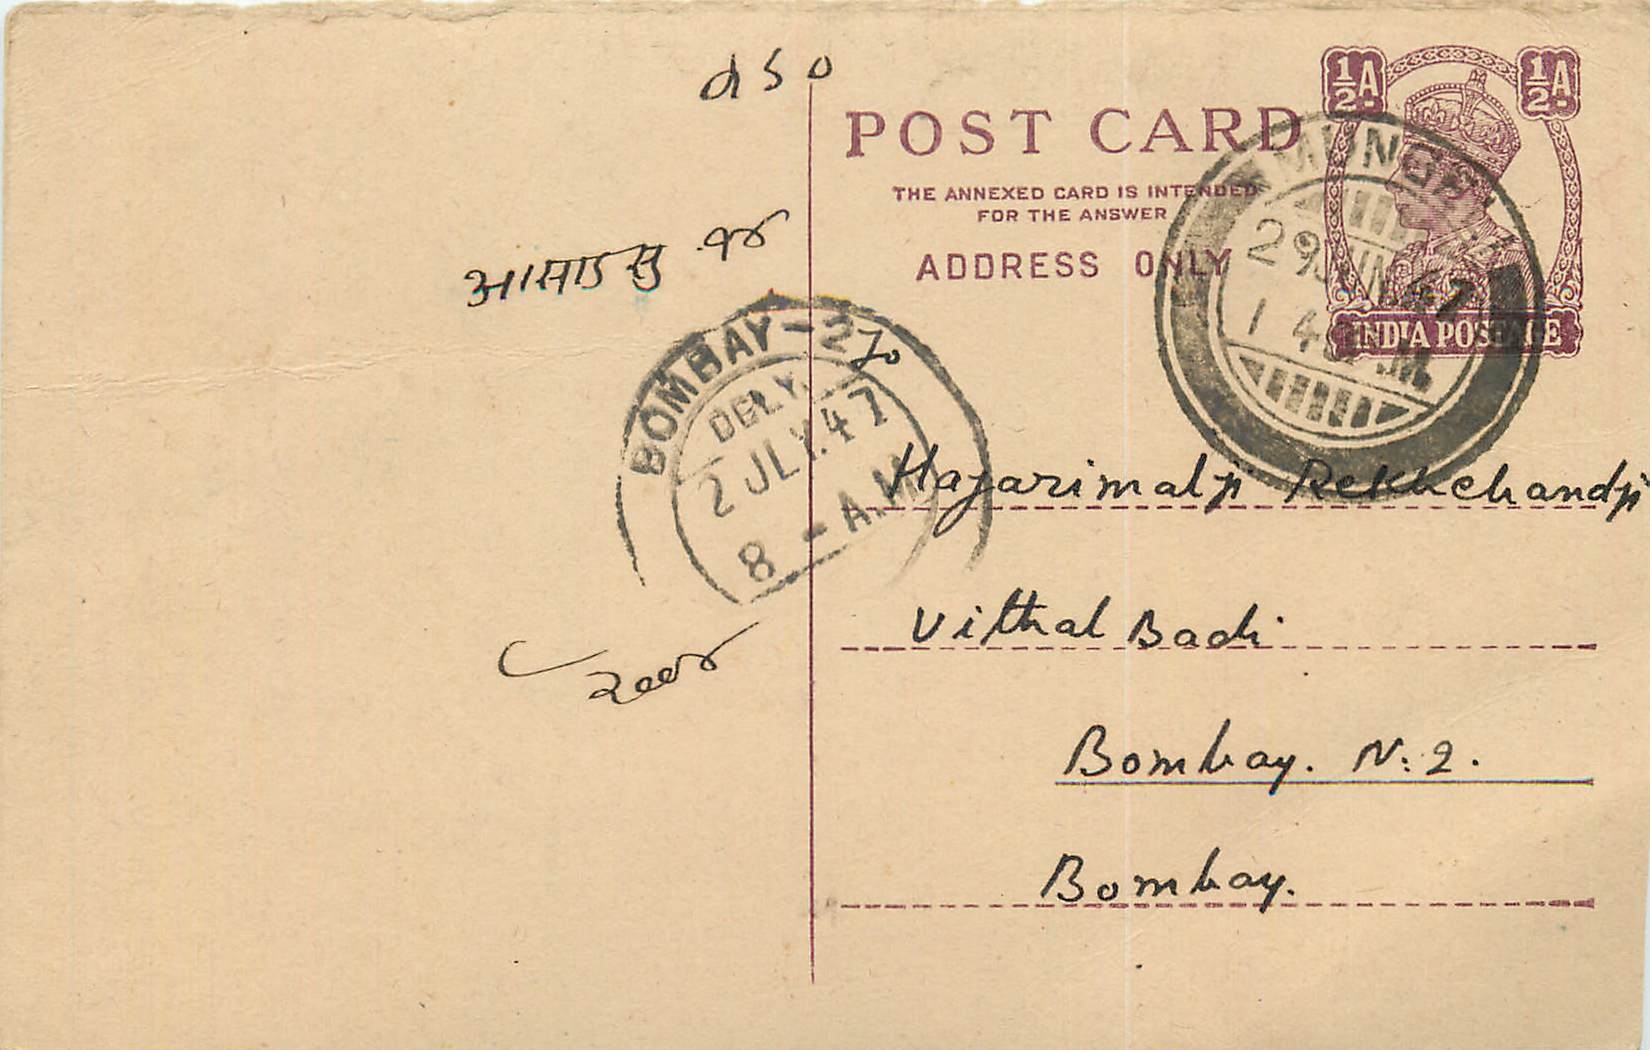 ½A. ½A.
POST CARD
THE ANNEXED CARD IS INTENDED
FOR THE ANSWER
ADDRESS ONLY
INDIA POSTAGE
29 JUN 47
BOMBAY-2
DELY.
2 JLY.47
8 - A.M
Hajarimalji Rekhchandji
Vithal Badi
Bombay. N: 2.
Bombay.